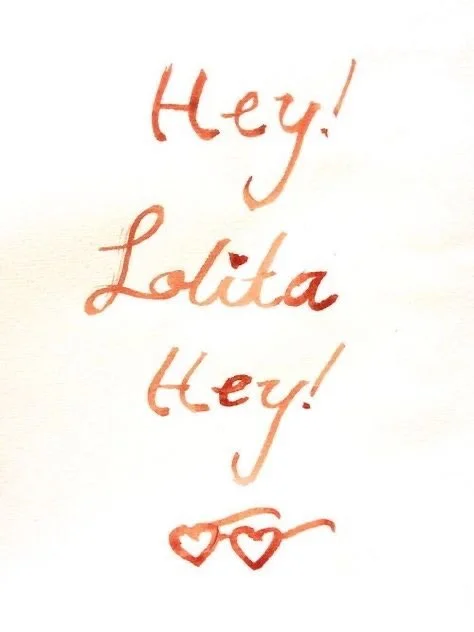 Hey!
Lolita
Hey!